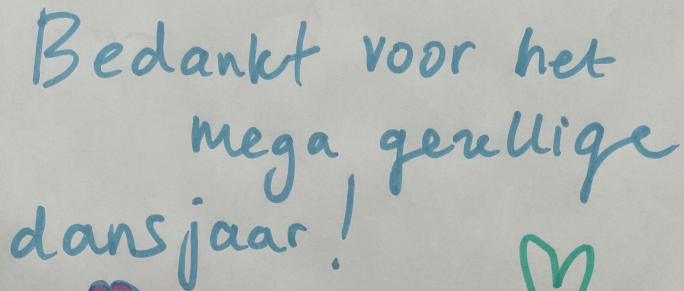 Bedankt voor het
mega gezellige
dansjaar!